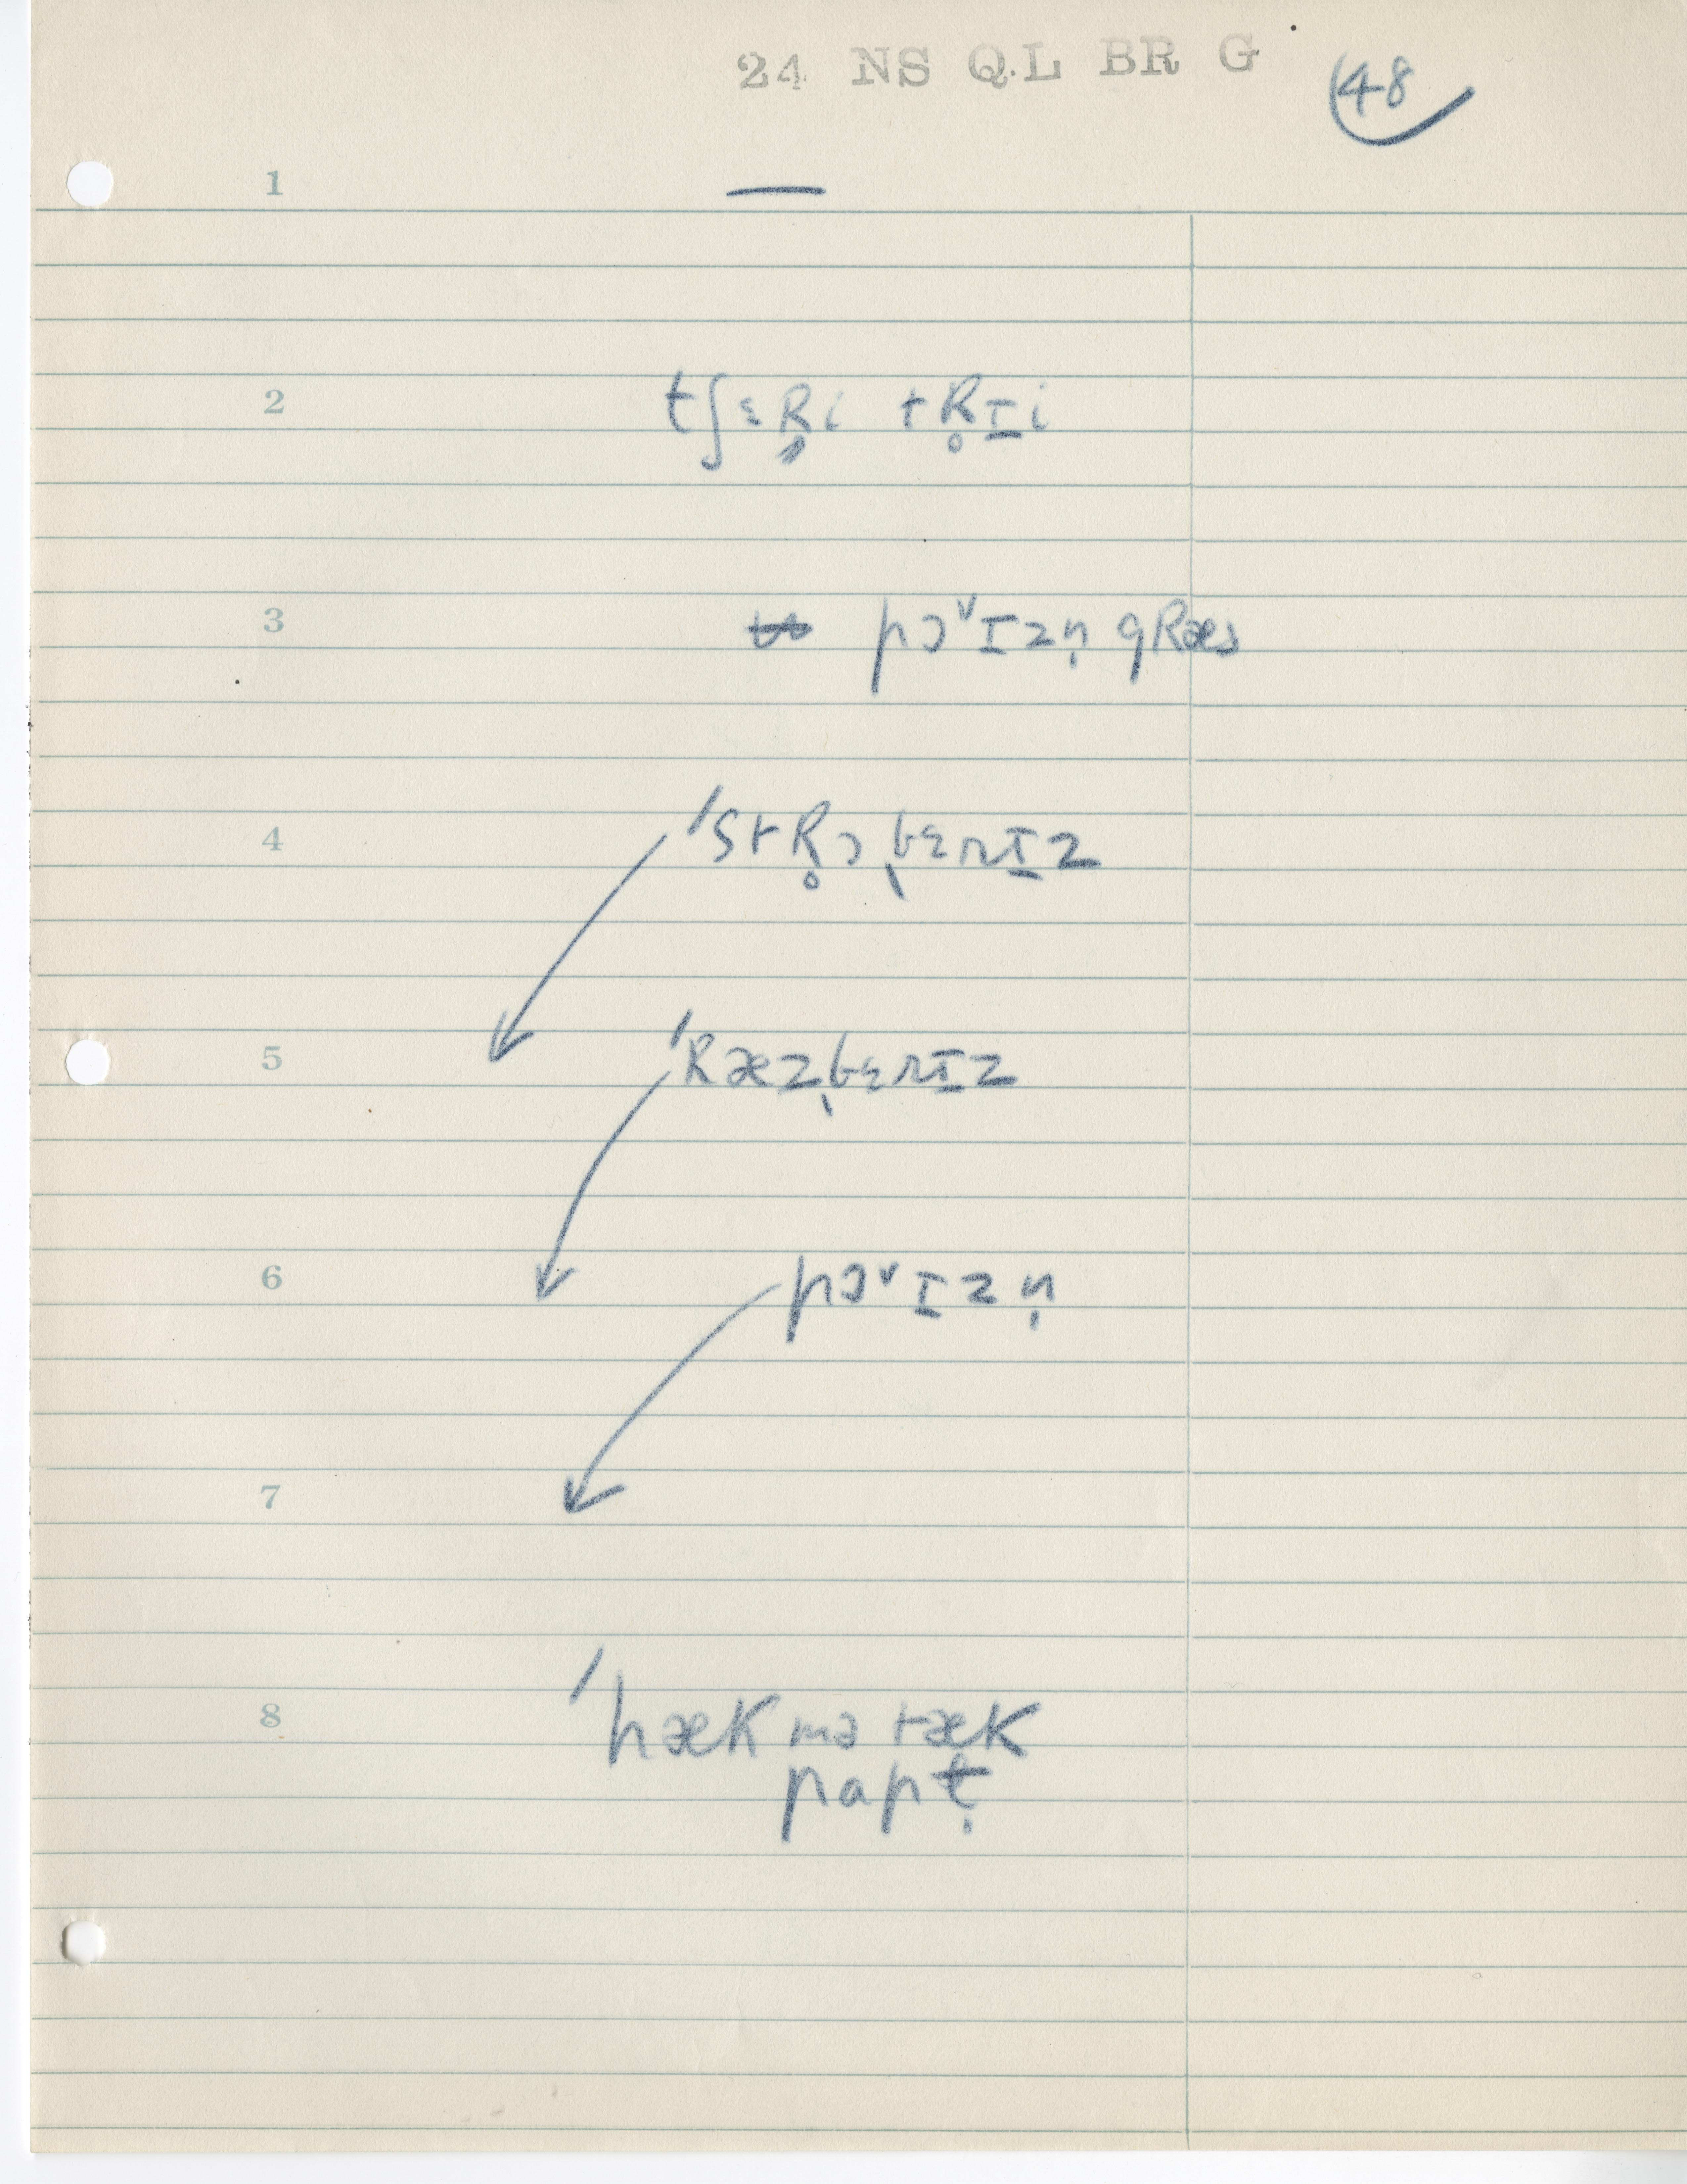 24 NS QL BR G
48
1 —
2 tʃɛR̥i tR̥ɪ̱i
3 pɔˇɪzn̩ gRæs
4 ˈstR̥ɔˌbɛrɪ̱z
5 ˈRæzˌbɛrɪ̱z
6 pɔˇɪzn̩
7
8 ˈhækmətæk
papl̴̩